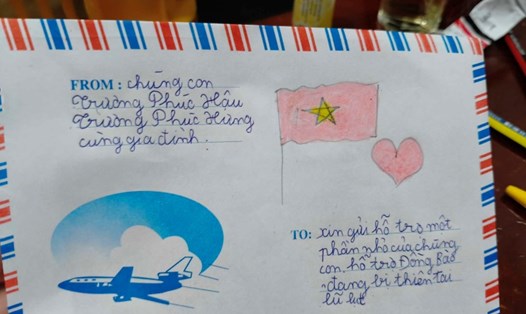 FROM : chúng con
Trương Phúc Hậu
Trương Phúc Hưng
cùng gia đình.
TO: xin gửi hỗ trợ một
phần nhỏ của chúng
con, hỗ trợ Đồng Bào
đang bị thiên tai
lũ lụt